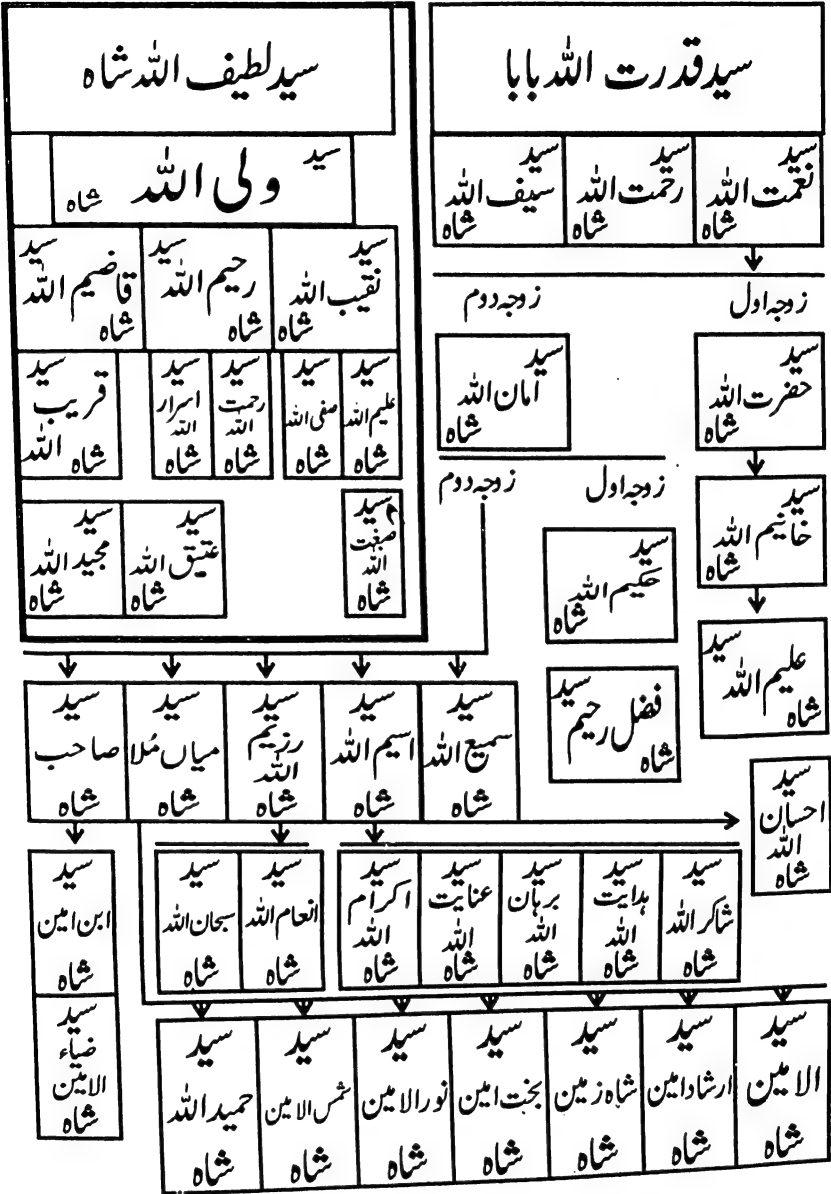 سید قدرت اللہ بابا
سید نعمت اللہ شاہ
سید رحمت اللہ شاہ
سید سیف اللہ شاہ
زوجہ اول
زوجہ دوم
سید حضرت اللہ شاہ
سید امان اللہ شاہ
زوجہ اول
زوجہ دوم
سید خانیم اللہ شاہ
سید حکیم اللہ شاہ
سید علیم اللہ شاہ
سید فضل رحیم شاہ
سید لطیف اللہ شاہ
سید ولی اللہ شاہ
سید نقیب اللہ شاہ
سید رحیم اللہ شاہ
سید قاضیم اللہ شاہ
سید علیم اللہ شاہ
سید صفی اللہ شاہ
سید رحمت اللہ شاہ
سید اسرار اللہ شاہ
سید قریب اللہ شاہ
سید صبغت اللہ شاہ
سید عتیق اللہ شاہ
سید مجید اللہ شاہ
سید سمیع اللہ شاہ
سید اسیم اللہ شاہ
سید رزیم اللہ شاہ
سید میاں مُلا شاہ
سید صاحب شاہ
سید احسان اللہ شاہ
سید شاکر اللہ شاہ
سید ہدایت اللہ شاہ
سید برہان اللہ شاہ
سید عنایت اللہ شاہ
سید اکرام اللہ شاہ
سید انعام اللہ شاہ
سید سبحان اللہ شاہ
سید ابن امین شاہ
سید ضیاء الامین شاہ
سید الامین شاہ
سید ارشاد امین شاہ
سید شاہ زمین شاہ
سید بخت امین شاہ
سید نور الامین شاہ
سید شمس الامین شاہ
سید حمید اللہ شاہ